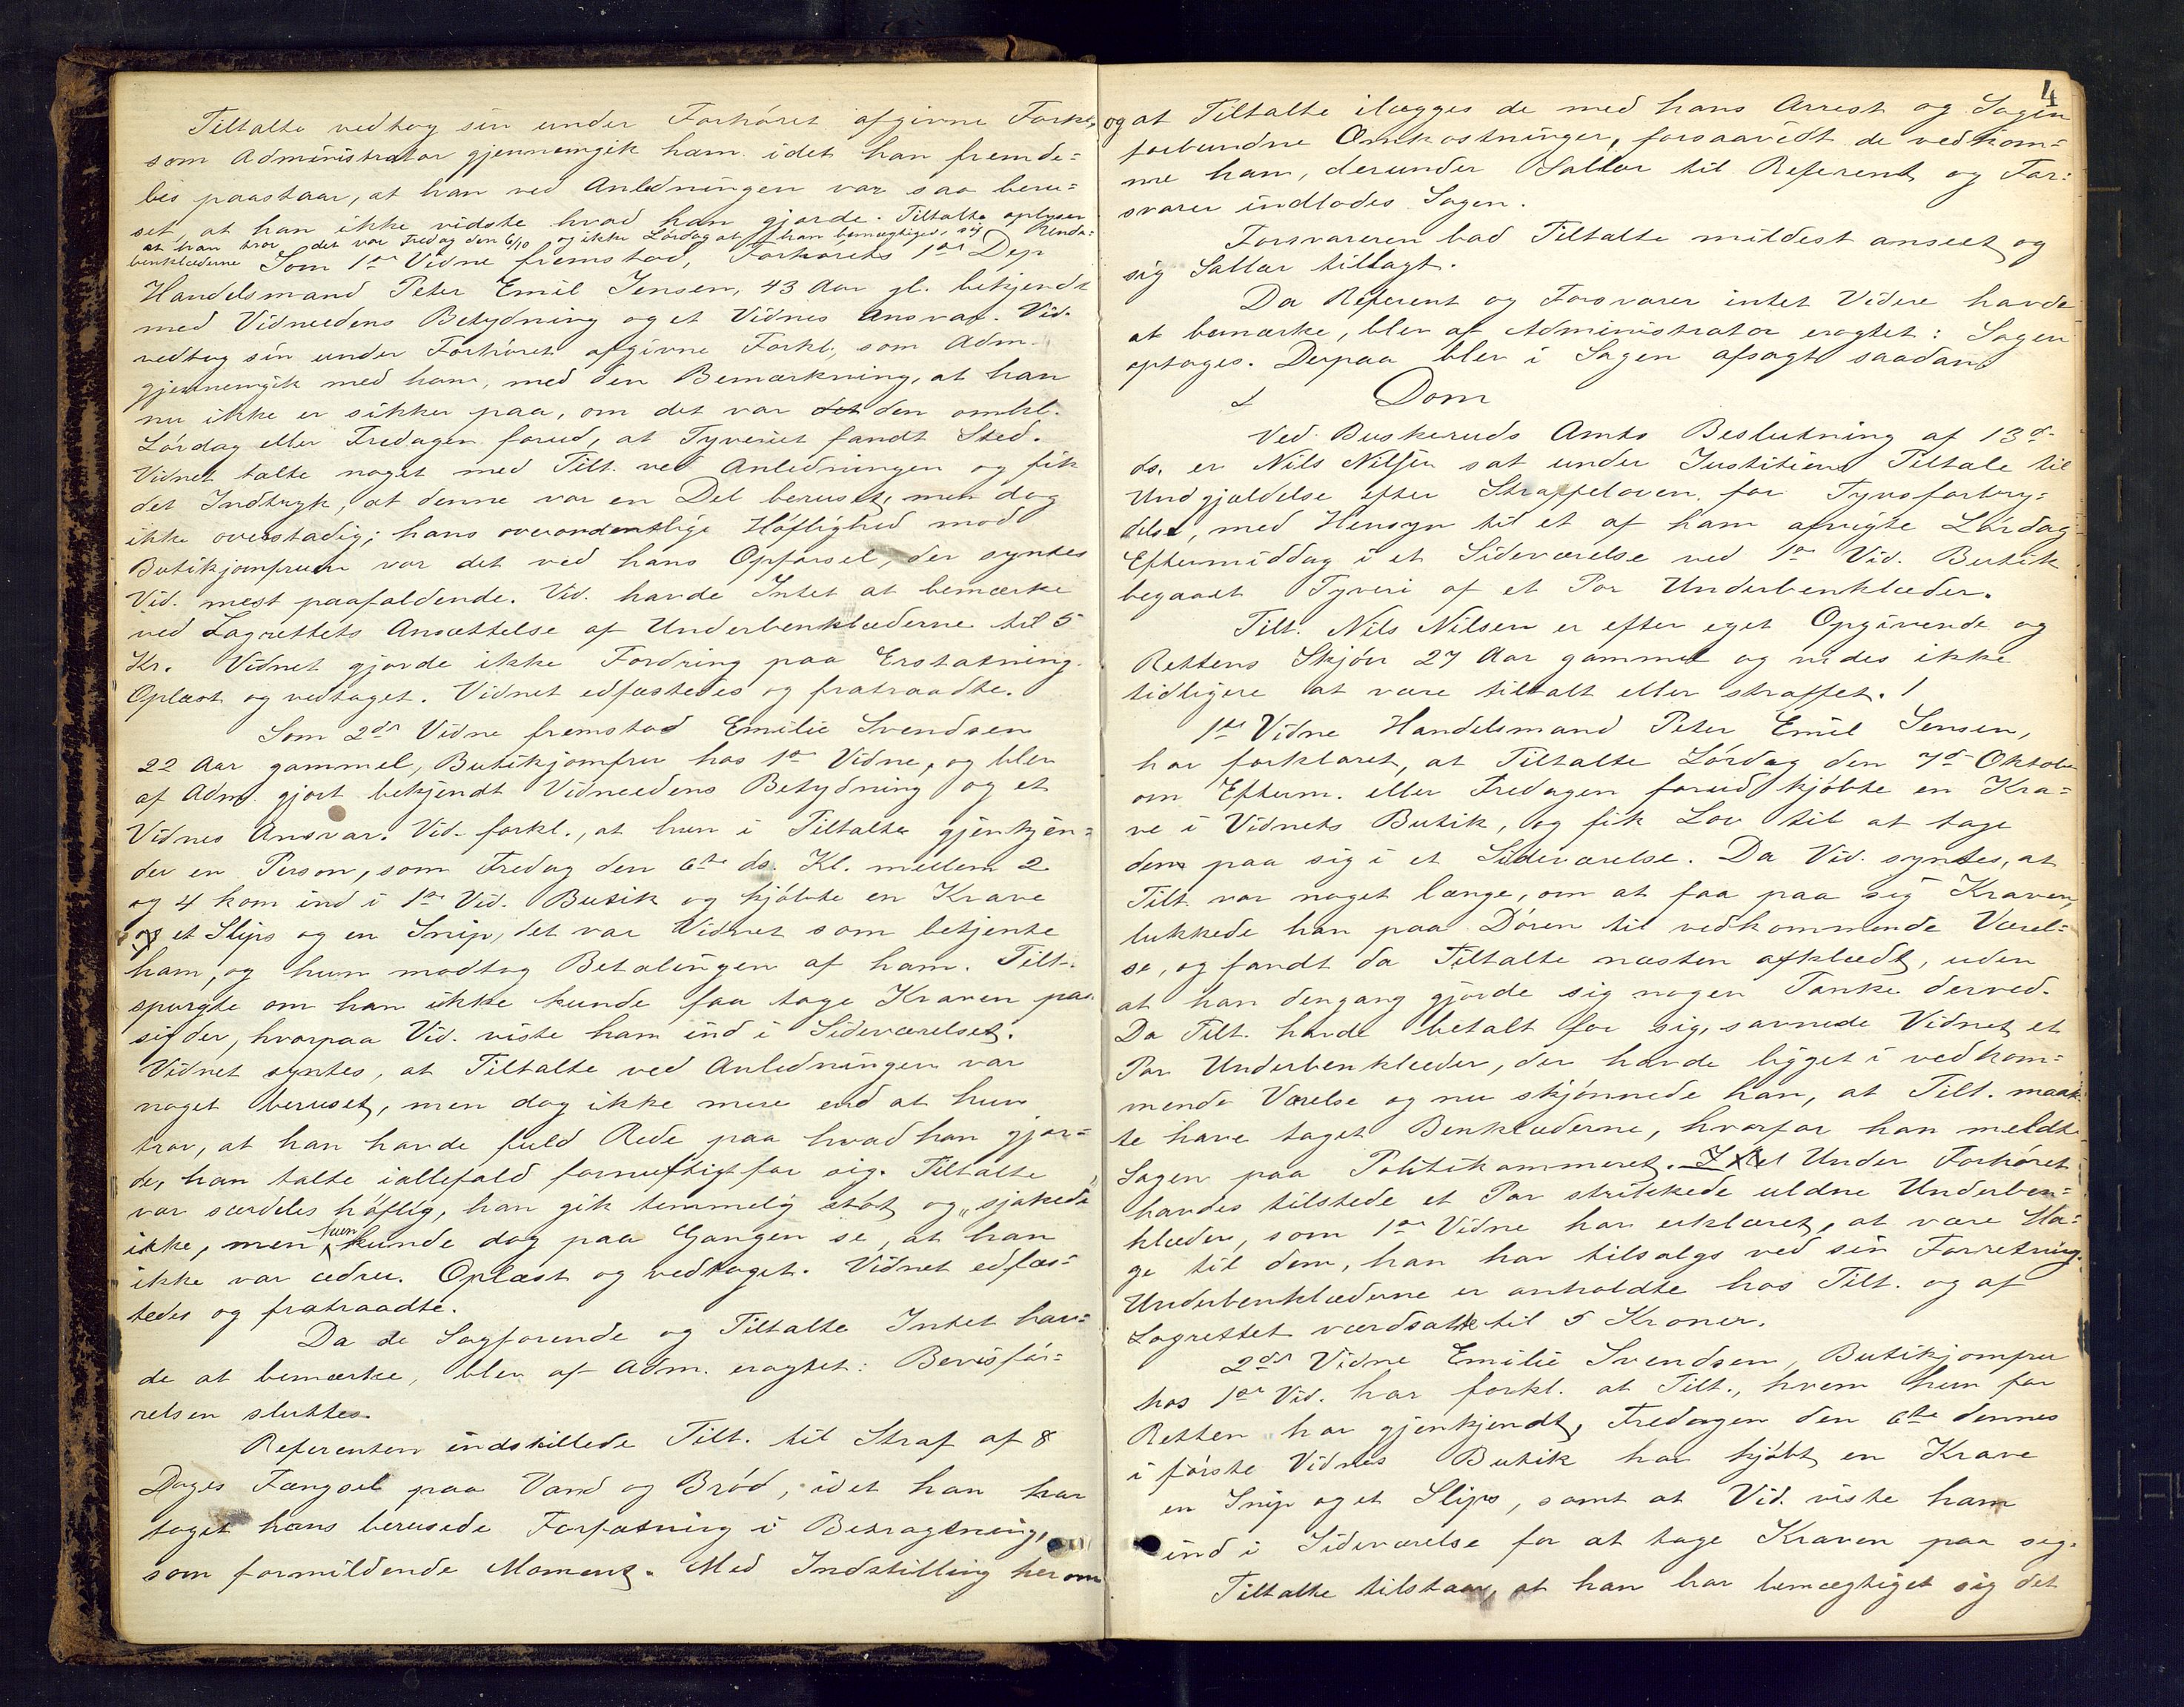 Tiltalte vedtog sin under Forhöret afgivne Forkl.
som Administrator gjennemgik ham idet han fremde=
les paastaar, at han ved Anledningen var saa beru=
set, at han ikke vidste hvad han gjorde. Tiltalte oplyser
at han tror det var Fredag den 6/10 og ikke Lördag at han bemægtiget sig Under=
benklæderne Som 1ste Vidne fremstod, Forhörets 1ste Dep
Handelsmand Peter Emil Jensen, 43 Aar gl. bekjendt
med Vidneedens Betydning og et Vidnes Ansvar. Vid.
vedtog sin under Forhöret afgivne Forkl, som Adm.
gjennemgik med ham, med den Bemærkning, at han
nu ikke er sikker paa, om det var det den omhl.
Lördag eller Fredagen forud, at Tyveriet fandt Sted.
Vidnet talte noget med Tilt. ved Anledningen og fik
det Indtryk, at denne var en Del beruset, men dog
ikke overstadig; hans overordentlige Höflighed mod
Butikjomfruen var det ved hans Opförsel, der syntes
Vid. mest paafaldende. Vid. havde Intet at bemærke
ved Lagrettets Ansættelse af Underbenklæderne til 5
Kr. Vidnet gjorde ikke Fordring paa Erstatning.
Oplæst og vedtaget. Vidnet edfæstedes og fratraadte.
Som 2det Vidne fremstod Emilie Svendsen
22 Aar gammel, Butikjomfru hos 1ste Vidne, og blev
af Adm. gjort bekjendt Vidneedens Betydning og et
Vidnes Ansvar. Vid. forkl., at hun i Tiltalte gjenkjen=
der en Person, som Fredag den 6te ds. Kl. mellem 2
og 4 kom ind i 1ste Vid. Butik og kjöbte en Krave
og et Slips og en Snip, det var Vidnet som betjente
ham, og hun modtog Betalingen af ham. Tilt.
spurgte om han ikke kunde faa tage Kraven paa
sig der, hvorpaa Vid. viste ham ind i Sideværelset.
Vidnet syntes, at Tiltalte ved Anledningen var
noget beruset, men dog ikke mere end at hun
tror, at han havde fuld Rede paa hvad han gjor=
de, han talte iallefald fornuftigt for sig. Tiltalte
var særdeles höflig, han gik temmelig stöt og „sjakede"
ikke, men hun kunde dog paa Gangen se, at han
ikke var ædru. Oplæst og vedtaget. Vidnet edfæs=
tedes og fratraadte.
Da de Sagförende og Tiltalte Intet hav=
de at bemærke, blev af Adm. eragtet: Bevisfö=
relsen sluttes.
Referenten indstillede Tilt. til Straf af 8
Dages Fængsel paa Vand og Bröd, idet han har
taget hans berusede Forfatning i Betragtning,
som formildende Moment. Med Indstilling herom
4
og at Tiltalte ilægges de med hans Arrest og Sagen
forbundne Omkostninger, forsaavidt de vedkom=
me ham, derunder Sallær til Referent og For=
svarer indlodes Sagen.
Forsvareren bad Tiltalte mildest anseet og
sig Sallær tillagt.
Da Referent og Forsvarer intet Videre havde
at bemærke, blev af Administrator eragtet: Sagen
optages. Derpaa blev i Sagen afsagt saadan
Dom
Ved Buskeruds Amts Beslutning af 13de
ds. er Nils Nilsen sat under Justitiens Tiltale til
Undgjældelse efter Straffeloven for Tyvsforbry=
delse, med Hensyn til et af ham afvigte Lördag
Eftermiddag i et Sideværelse ved 1ste Vid. Butik
begaaet Tyveri af et Par Underbenklæder.
Tilt. Nils Nilsen er efter eget Opgivende og
Rettens Skjön 27 Aar gammel og vides ikke
tidligere at være tiltalt eller straffet.
1ste Vidne Handelsmand Peter Emil Jensen,
har forklaret, at Tiltalte Lördag den 7de Oktober
om Efterm. eller Fredagen forud kjöbte en Kra=
ve i Vidnets Butik, og fik Lov til at tage
den paa sig i et Sideværelse. Da Vid. syntes, at
Tilt. var noget længe, om at faa paa sig Kraven,
lukkede han paa Dören til vedkommende Værel=
se, og fandt da Tiltalte næsten afklædt, uden
at han dengang gjorde sig nogen Tanke derved.
Da Tilt. havde betalt for sig, savnede Vidnet et
Par Underbenklæder, der havde ligget i vedkom=
mende Værelse og nu skjönnede han, at Tilt. maat=
te have taget Benklæderne, hvorfor han meldte
Sagen paa Politikammeret. Under Forhöret
havdes tilstede et Par strikkede uldne Underben=
klæder, som 1ste Vidne har erklæret, at være Ma=
ge til dem, han har tilsalgs ved sin Forretning.
Underbenklæderne er anholdte hos Tilt. og af
Lagrettet værdsatte til 5 Kroner.
2det Vidne Emilie Svendsen, Butikjomfru
hos 1ste Vid. har forkl. at Tilt., hvem hun for
Retten har gjenkjendt, Fredagen den 6te dennes
i förste Vidnes Butik har kjöbt en Krave
en Snip og et Slips, samt at Vid. viste ham
ind i Sideværelse for at tage Kraven paa sig.
Tiltalte tilstaar, at han har bemægtiget sig det